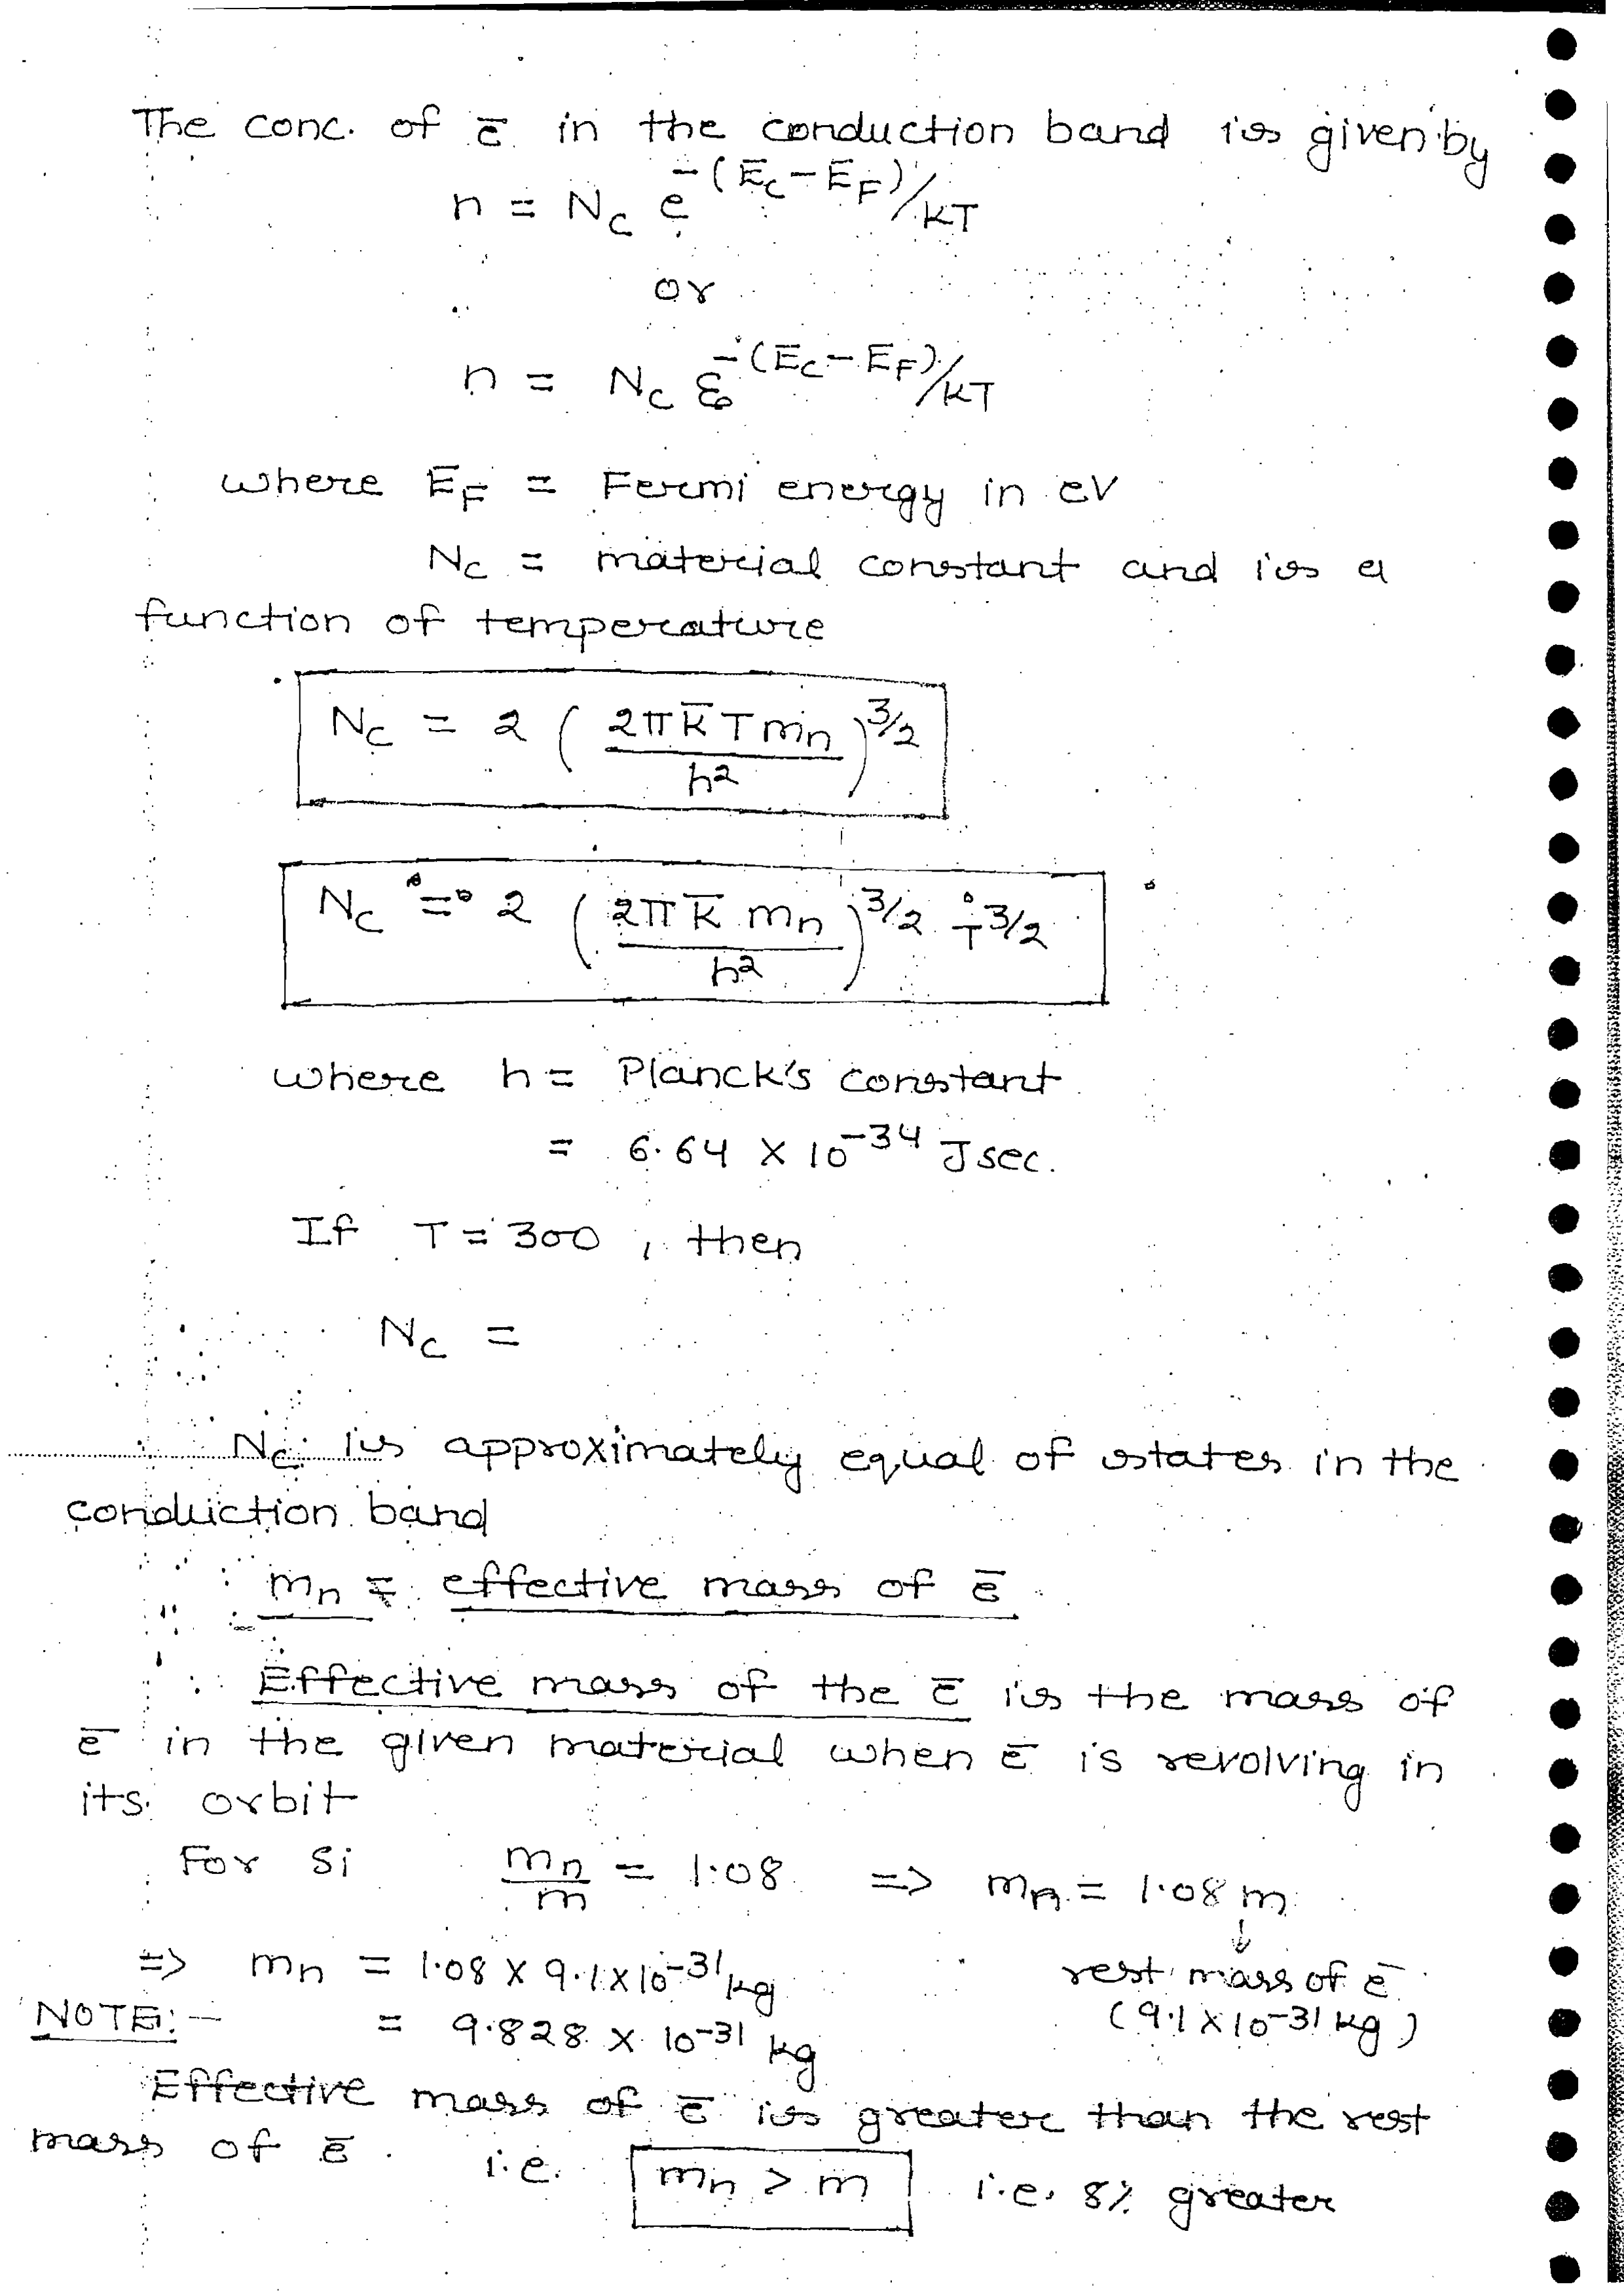 The conc. of e̅ in the conduction band is given by
n = N_C e^-(E_C-E_F)/KT
or
n = N_C ε^-(E_C-E_F)/KT
where E_F = Fermi energy in eV
N_C = material constant and is a
function of temperature
N_C = 2 (2πk̅Tm_n/h²)^3/2
N_C = 2 (2πk̅m_n/h²)^3/2 T^3/2
where h = Planck's constant
= 6.64 × 10^-34 J sec.
If T = 300, then
N_C =
N_C is approximately equal of states in the
conduction band
m_n = effective mass of e̅
Effective mass of the e̅ is the mass of
e̅ in the given material when e̅ is revolving in
its orbit
For Si m_n/m = 1.08 => m_n = 1.08 m
↓
=> m_n = 1.08 × 9.1 × 10^-31 kg rest mass of e̅
NOTE:- = 9.828 × 10^-31 kg (9.1 × 10^-31 kg)
Effective mass of e̅ is greater than the rest
mass of e̅. i.e. m_n > m i.e. 8% greater